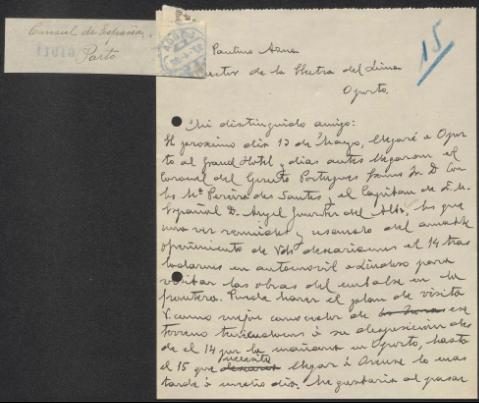 Consul de España
Porto
15
Paulino
Director de la Electra del Lima
Oporto.
Mi distinguido amigo:
El proximo dia 13 de Mayo, llegaré a Opor
to al Grand Hotel y dias antes llegaran el
Coronel del Ejercito Portugues Exmo Sr. D. Car
los Mª Pereira dos Santos y el Capitan de E. M.
Español D. Angel del los que
una vez reunidos y usando del amable
ofrecimiento de Vds desearíamos el 14 tras
ladarnos en automovil a Lindoso para
visitar las obras del embalse en la
frontera. Puede hacer el plan de visita
V. como mejor conocedor de ese
terreno teniendonos á su disposicion des
de el 14 por la mañana en Oporto, hasta
el 15 que necesito llegar á Orense lo mas
tarde á medio dia. Me gustaria al pasar